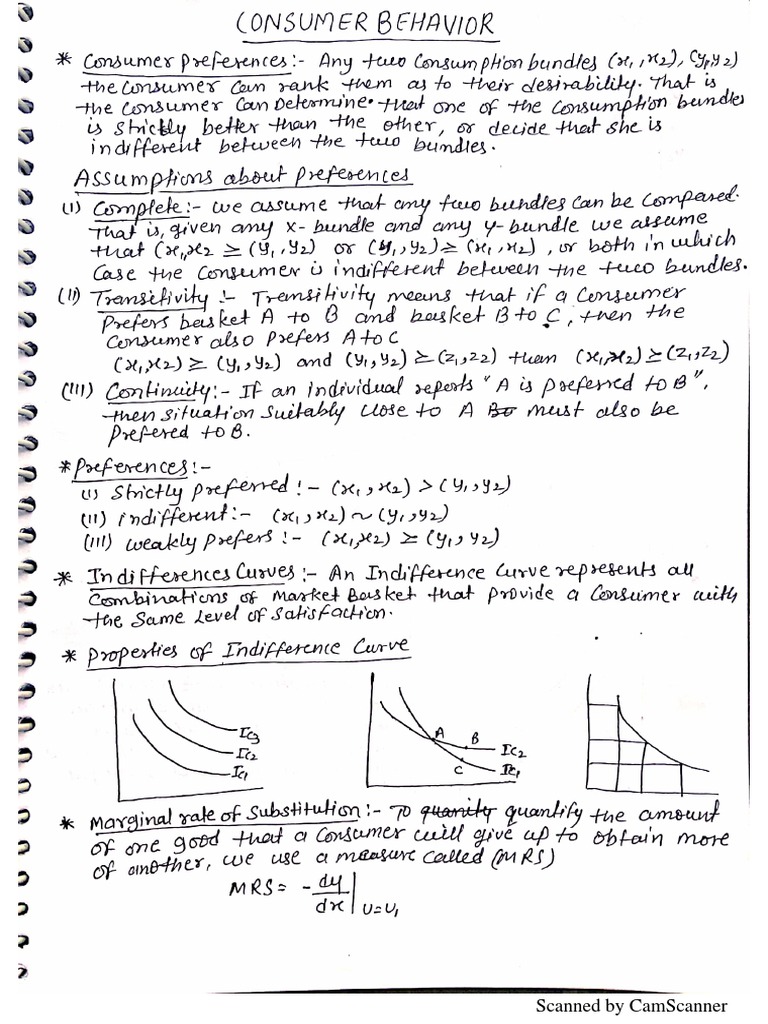 CONSUMER BEHAVIOR
* Consumer preferences:- Any two consumption bundles (x1,x2), (y1y2)
the consumer can rank them as to their desirability. That is
the consumer can Determine that one of the consumption bundles
is strictly better than the other, or decide that she is
indifferent between the two bundles.
Assumptions about preferences
(I) Complete:- we assume that any two bundles can be compared.
That is, given any x-bundle and any y-bundle we assume
that (x1,x2 ≥ (y1,y2) or (y1,y2) ≥ (x1,x2), or both in which
Case the consumer is indifferent between the two bundles.
(II) Transitivity :- Transitivity means that if a consumer
prefers basket A to B and basket B to C, then the
consumer also prefers A to C
(x1,x2) ≥ (y1,y2) and (y1,y2) ≥ (z1,z2) then (x1,x2) ≥ (z1,z2)
(III) Continuity:- If an individual reports "A is preferred to B",
then situation suitably close to A must also be
prefered to B.
* Preferences:-
(I) Strictly preferred :- (x1,x2) > (y1,y2)
(II) indifferent:- (x1,x2) ~ (y1,y2)
(III) weakly prefers :- (x1,x2) ≥ (y1,y2)
* Indifferences Curves :- An Indifference Curve represents all
Combinations of Market Basket that provide a consumer with
the Same Level of Satisfaction.
* Properties of Indifference Curve
IC3
IC2
IC1
A
B
C
IC2
IC1
* Marginal rate of Substitution :- To quanity quantify the amount
of one good that a consumer will give up to obtain more
of another, we use a measure called (MRS)
MRS = -dy/dx | U=U1
Scanned by CamScanner